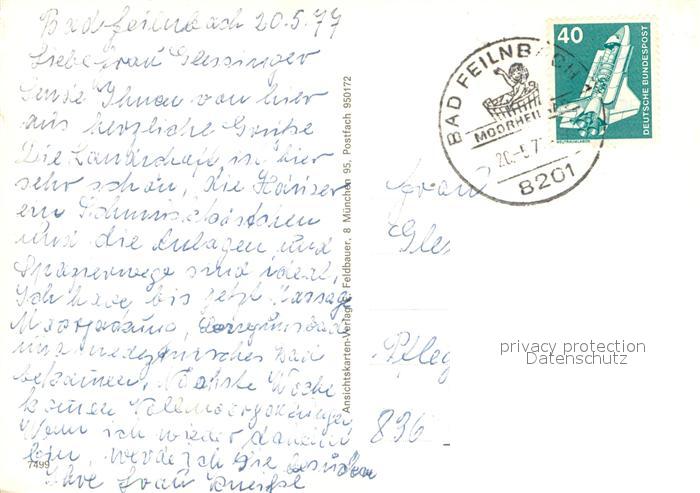 Bad-feilnbach 20.5.77
Liebe Frau Glessinger
Sende Ihnen von hier
aus herzliche Grüße
Die Landschaft ist hier
sehr schön, die Häuser
ein Schmuckkästchen
und die Anlagen und
Spazierwege sind ideal,
Ich habe bis jetzt Massage
Moorpackung, Bewegungsbad
und medizinisches Bad
bekommen. Nächste Woche
kommen Vollmoorpackungen
Wenn ich wieder daheim
bin, werde ich Sie besuchen
Ihre Frau
7499
Ansichtskarten-Verlag E. Feldbauer, 8 München 95, Postfach 950172
BAD FEILNBACH
MOORHEILBAD
20.-5.7
8201
40
DEUTSCHE BUNDESPOST
WELTRAUMLABOR
Frau
Gles
Pfleg
836
privacy protection
Datenschutz